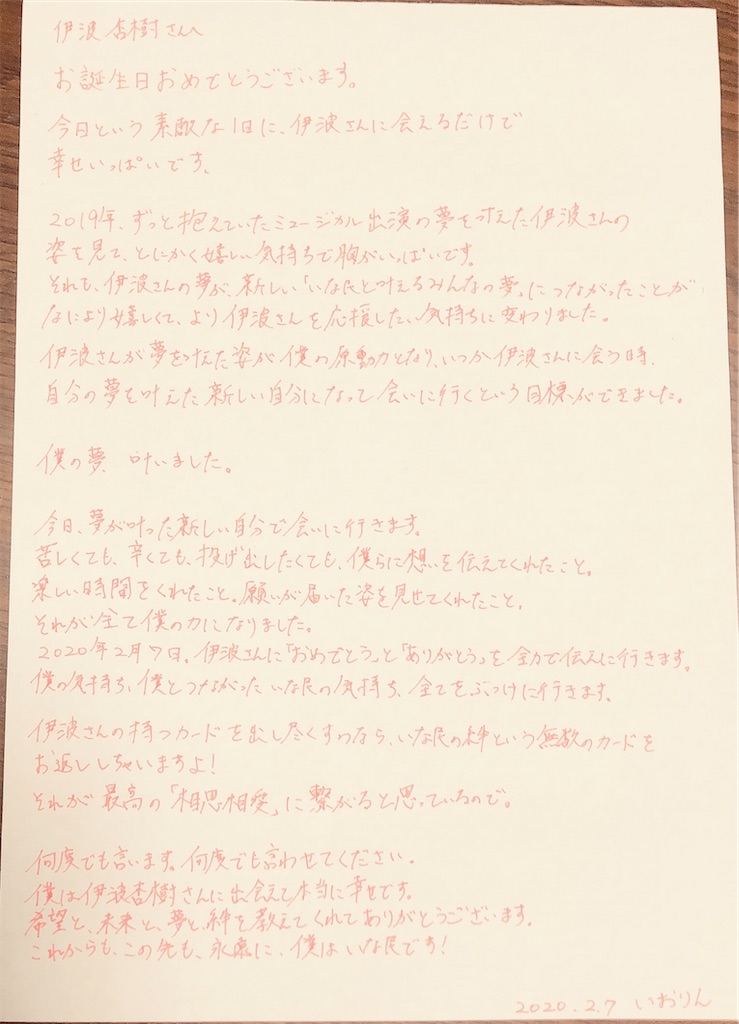 伊波杏樹さんへ
お誕生日おめでとうございます。
今日という素敵な1日に、伊波さんに会えるだけで
幸せいっぱいです。
2019年、ずっと抱えていたミュージカル出演の夢を叶えた伊波さんの
姿を見て、とにかく嬉しい気持ちで胸がいっぱいです。
それも、伊波さんの夢が、新しい「いな民と叶えるみんなの夢」につながったことが
なにより嬉しくて、より伊波さんを応援したい気持ちに変わりました。
伊波さんが夢を叶えた姿が僕の原動力となり、いつか伊波さんに会う時、
自分の夢を叶えた新しい自分になって会いに行くという目標ができました。
僕の夢、叶いました。
今日、夢が叶った新しい自分で会いに行きます。
苦しくても、辛くても、投げ出したくても、僕らに想いを伝えてくれたこと。
楽しい時間をくれたこと。願いが届いた姿を見せてくれたこと。
それが全て僕の力になりました。
2020年2月7日。伊波さんに「おめでとう」と「ありがとう」を全力で伝えに行きます。
僕の気持ち、僕とつながったいな民の気持ち、全てをぶつけに行きます。
伊波さんの持つカードを出し尽くすのなら、いな民の絆という無数のカードを
お返ししちゃいますよ!
それが最高の「相思相愛」に繋がると思っているので。
何度でも言います。何度でも言わせてください。
僕は伊波杏樹さんに出会えて本当に幸せです。
希望と、未来と、夢と、絆を教えてくれてありがとうございます。
これからも、この先も、永遠に、僕はいな民です!
2020.2.7 いおりん